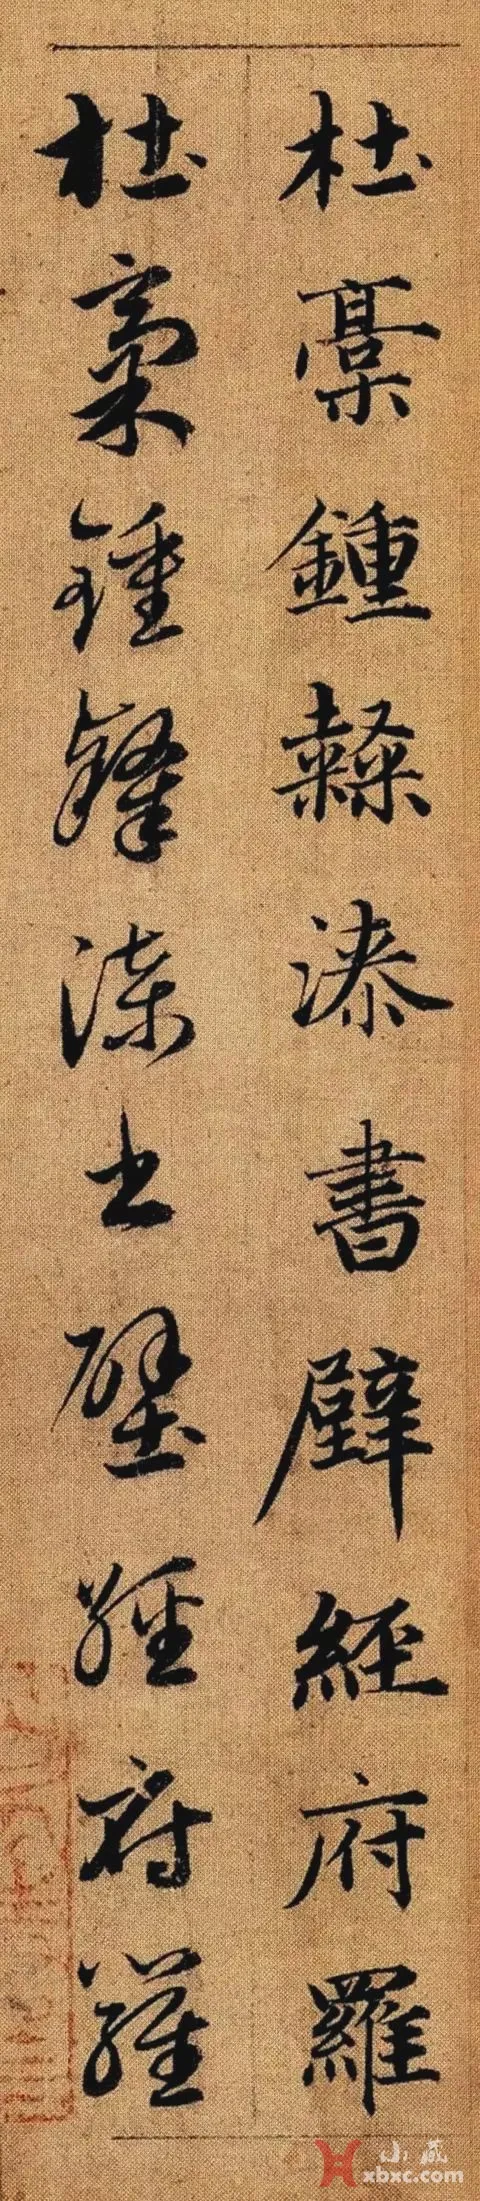 杜稾鍾隸漆書壁經府羅
杜稾鍾隸漆书壁經府羅
小藏
xbxc.com